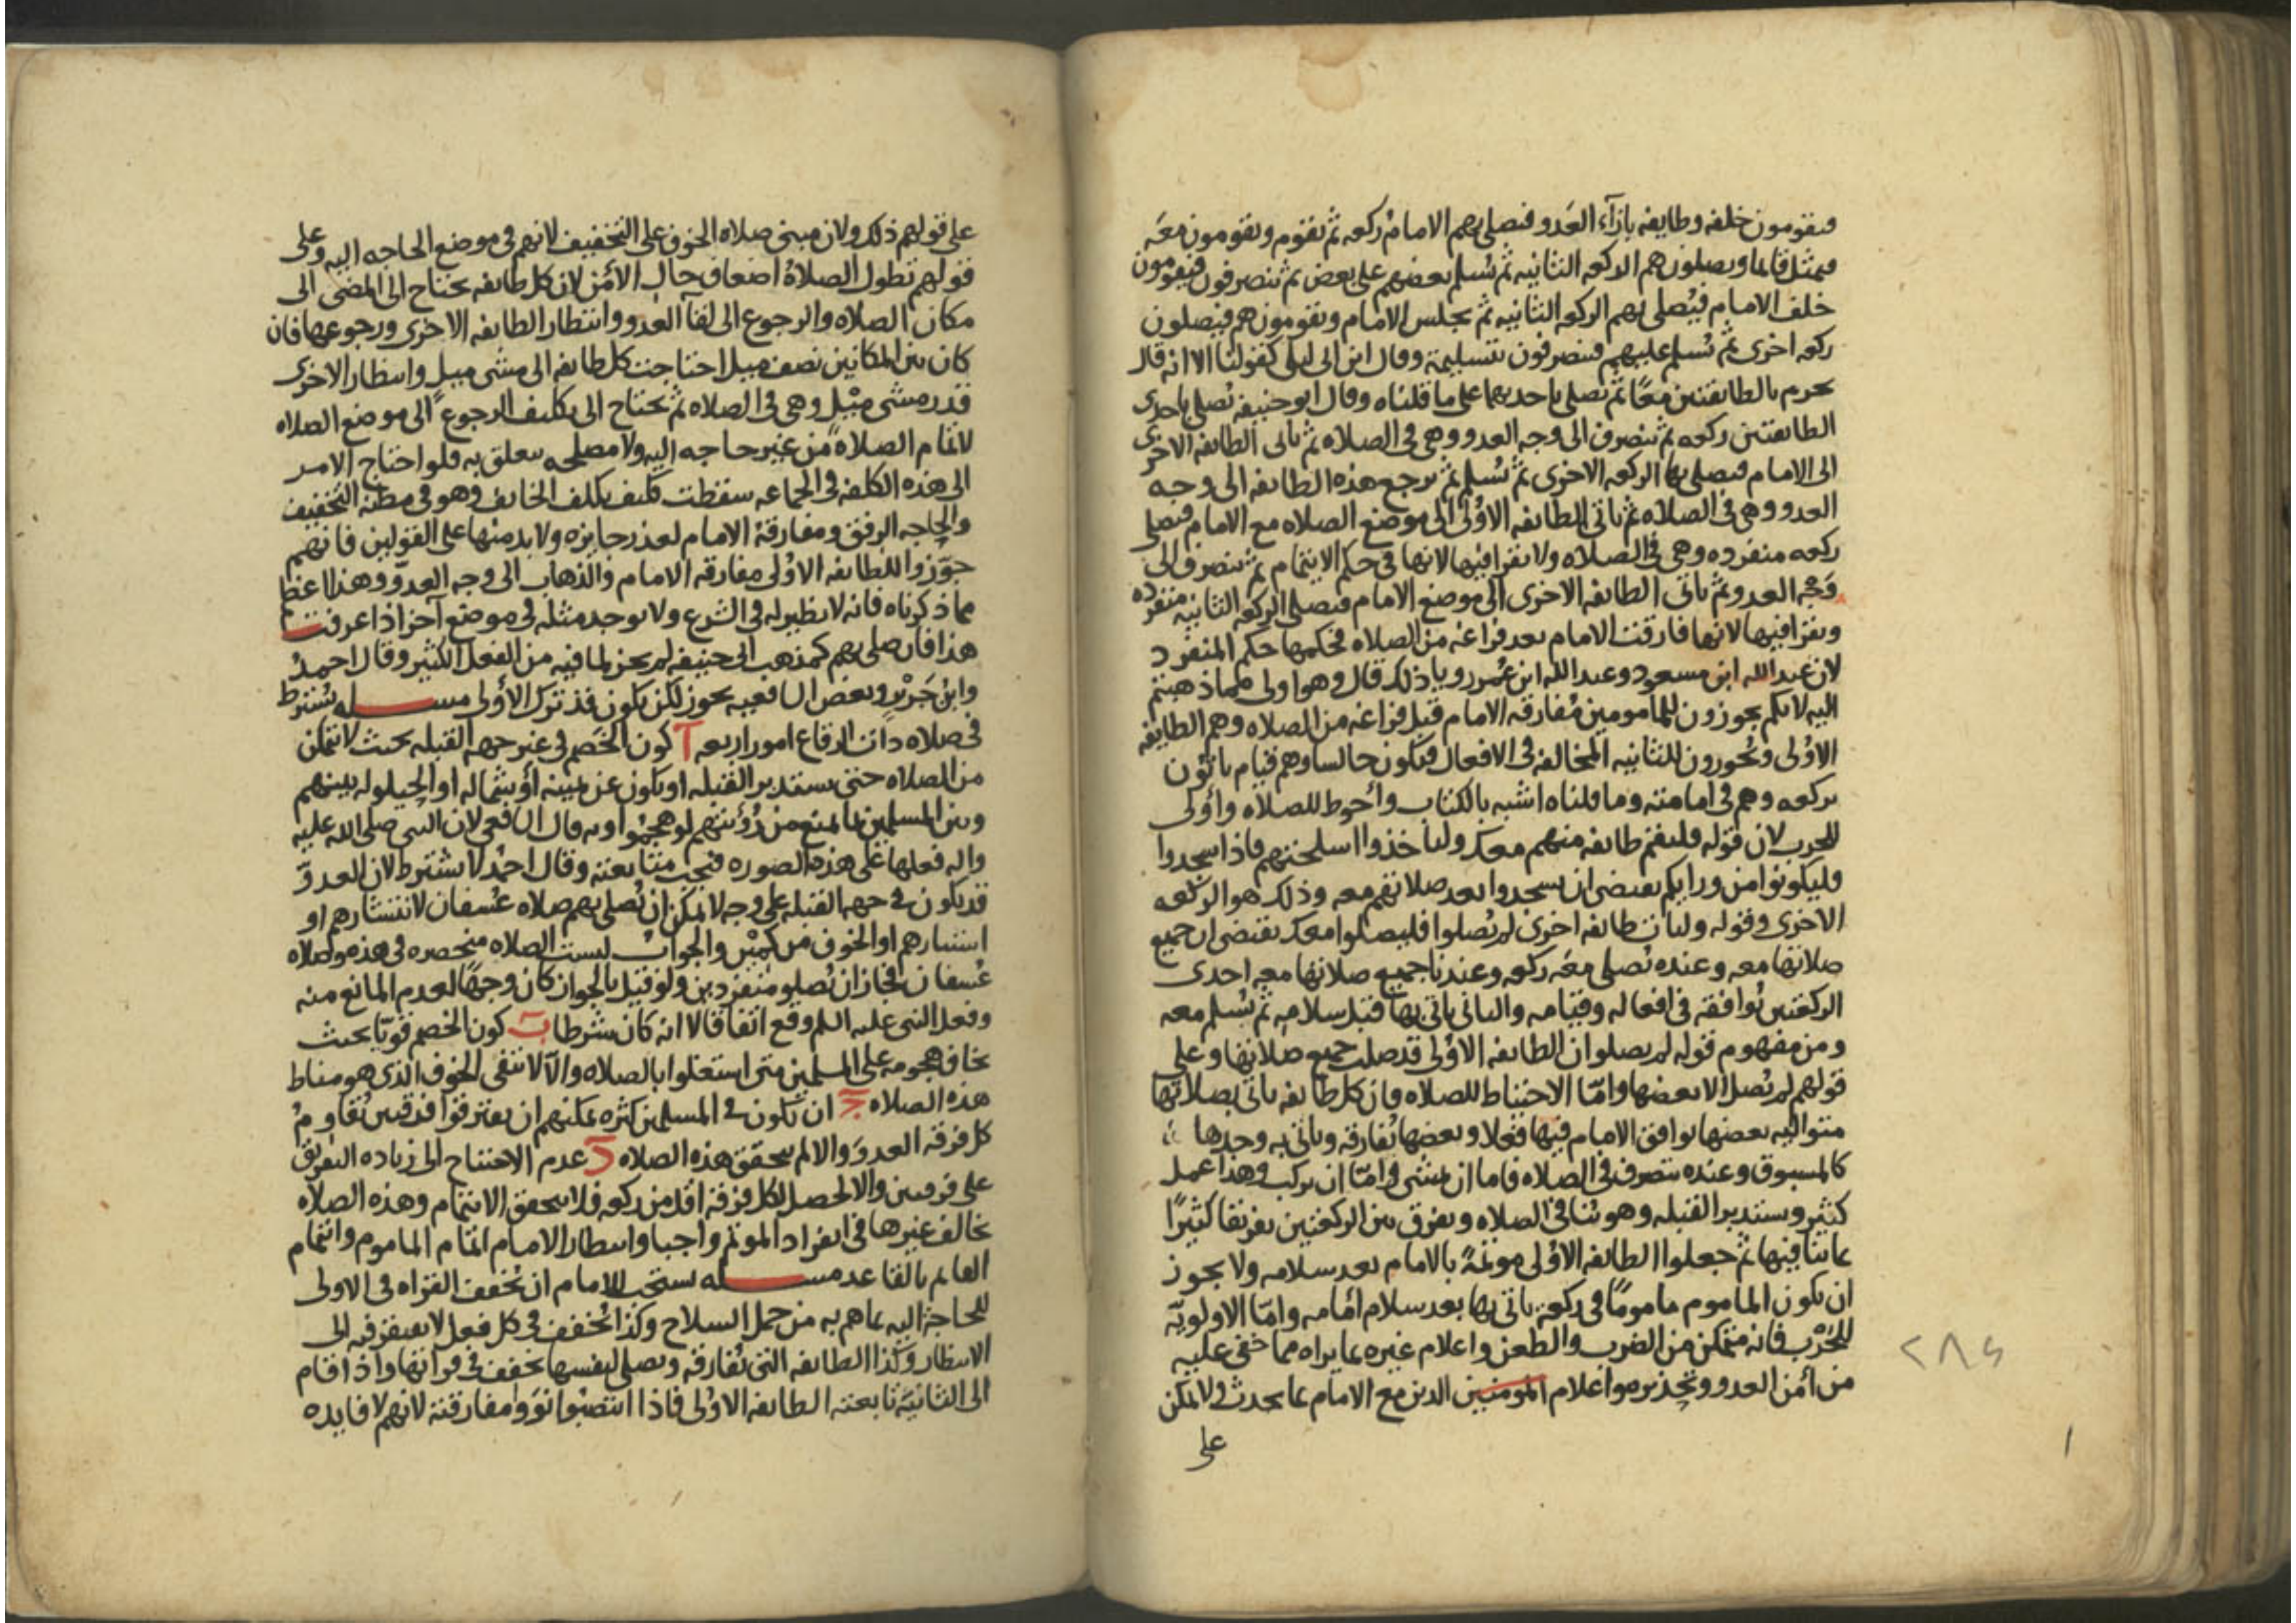 فيقومون خلفه وطايفه بازآء العدو فيصلى بهم الامام ركعه ثم يقوم ويقومون معه
فيمثل قايما ويصلون هم الركعه الثانيه ثم يسلم بعضهم على بعض ثم ينصرفون فيقومون
خلف الامام فيصلى بهم الركعه الثانيه ثم يجلس الامام ويقومون هم فيصلون
ركعه اخرى ثم يسلم عليهم فينصرفون بتسليمة وقال ابن ابى ليلى كقولنا الا انه قال
يحرم بالطايفتين معًا ثم يصلى باحديهما على ما قلناه وقال ابو حنيفه يصلى باحدى
الطايفتين ركعه ثم ينصرف الى وجه العدو وهى فى الصلاه ثم ياتى الطايفه الاخرى
الى الامام فيصلى بها الركعه الاخرى ثم يسلم ثم يرجع هذه الطايفه الى وجه
العدو وهى فى الصلاه ثم ياتى الطايفه الاولى الى موضع الصلاه مع الامام فيصلى
ركعه منفرده وهى فى الصلاه ولا يقرا فيها لانها فى حكم الايتمام ثم ينصرف الى
وجه العدو ثم ياتى الطايفه الاخرى الى موضع الامام فيصلى الركعه الثانيه منفرده
ويقرا فيها لانها فارقت الامام بعد فراغه من الصلاه فحكمها حكم المنفرد
لان عبد الله ابن مسعود وعبد الله ابن عمر رويا ذلك قال وهو اولى مما ذهبتم
اليه لانكم يجوزون للمامومين مفارقه الامام قبل فراغه من الصلاه وهم الطايفه
الاولى وتجوزون للثانيه المخالفه فى الافعال فيكون جالسا وهم قيام ياتون
بركعه وهم فى امامته وما قلناه اشبه بالكتاب وأحوط للصلاه وأولى
للحرب لان قوله فليقم طايفه منهم معك ولياخذوا اسلحتهم فاذا سجدوا
فليكونوا من ورايكم يقتضى ان يسجدوا بعد صلاتهم معه وذلك هو الركعه
الاخرى وقوله ولتات طايفه اخرى لم يصلوا فليصلوا معك يقتضى ان جميع
صلاتها معه وعنده يصلى معه ركعه وعندنا جميع صلاتها معه احدى
الركعتين توافقه فى افعاله وقيامه والثانى ياتى بها قبل سلامه ثم يسلم معه
ومن مفهوم قوله لم يصلوا ان الطايفه الاولى قد صلت جميع صلاتها وعلى
قولهم لم يصل الا بعضها وامّا الاحتياط للصلاه فان كل طايفه ياتى بصلاتها
متواليه بعضها يوافق الامام فيها فعلا وبعضها تفارقه وياتى به وحدها
كالمسبوق وعنده ينصرف فى الصلاه فاما ان يمشى وامّا ان يركب وهذا عمل
كثير ويستدبر القبله وهو ينافى الصلاه ويفرق بين الركعتين تفريقا كثيرًا
بما ينافيها ثم جعلوا الطايفه الاولى موتمةً بالامام بعد سلامه ولا يجوز
ان يكون الماموم مامومًا فى ركعة ياتى بها بعد سلام امامه وامّا الاولويّه
للحرب فانه متمكن من الضرب والطعن واعلام غيره بما يراه مما خفى عليه
من أمن العدو وتحذيره واعلام المومنيين الدين مع الامام بما يحدث ولا يمكن
على
٢٨٤
على قولهم ذلك ولان مبنى صلاه الخوف على التخفيف لانهم فى موضع الحاجه اليه وعلى
قولهم تطول الصلاة اضعاف حال الأمن لان كل طايفه يحتاج الى المضى الى
مكان الصلاه والرجوع الى لقآ العدو وانتظار الطايفه الاخرى ورجوعها فان
كان بين المكانين نصف ميل احتاجت كل طايفه الى مشى ميل وانتظار الاخرى
قدر مشى ميل وهى فى الصلاه ثم يحتاج الى تكليف الرجوع الى موضع الصلاه
لاتمام الصلاة من غير حاجه اليه ولا مصلحه يتعلق به فلو احتاج الامر
الى هذه الكلفه فى الجماعه سقطت فكيف يكلف الخايف وهو فى مظنه التخفيف
والحاجه الرفق ومفارقة الامام لعذر جايزه ولا بد منها على القولين فانهم
جوّزوا للطايفه الاولى مفارقه الامام والذهاب الى وجه العدوّ وهذا اعظم
مما ذكرناه فانه لا نظير له فى الشرع ولا يوجد مثله فى موضع آخر اذا عرفت
هذا فان صلى بهم كمذهب ابى حنيفه لم يجز لما فيه من الفعل الكثير وقال احمدُ
وابن جرير وبعض الشافعيه يجوز لكن يكون قد ترك الأولى مسـله يشترط
فى صلاه ذات الرقاع امور اربعه آ كون الخصم فى غير جهه القبله بحيث لا يتمكن
من الصلاه حتى يستدبر القبله او يكون عن يمينه أو شماله او الحيلوله بينهم
وبين المسلمين بما يمنع من رؤيتهم لو هجموا وبه قال الشافعى لان النبى صلى الله عليه
واله فعلها على هذه الصوره فيجب متابعته وقال احمد لا يشترط لان العدوّ
قد يكون فى جهه القبله على وجه لا يمكن ان يصلى بهم صلاه عسفان لانتشارهم او
استتارهم او الخوف من كمين والجواب ليست الصلاه منحصره فى هذه وصلاه
عسفان فجاز ان يصلو منفردين ولو قيل بالجواز كان وجهًا لعدم المانع منه
وفعل النبى عليه السلم وقع اتفاقا لا انه كان شرطا ب كون الخصم قويّا بحيث
يخاف هجومه على المسلمين متى استغلوا بالصلاه والّا لانتفى الخوف الذى هو مناط
هذه الصلاه ج ان يكون فى المسلمين كثره يمكنهم ان يفترقوا فرقتين يقاوم
كل فرقه العدو والا لم يتحقق هذه الصلاه د عدم الاحتياج الى زياده التفريق
على فرقتين والا لحصل لكل فرقه اقل من ركعه فلا يتحقق الايتمام وهذه الصلاه
يخالف غيرها فى انفراد الموتم واجبا وانتظار الامام اتمام الماموم وايتمام
القايم بالقاعد مسـله يستحب للامام ان يخفف القراه فى الاولى
للحاجة اليه بما هم به من حمل السلاح وكذا يخفف فى كل فعل لا يفتقر فيه الى
الانتظار وكذا الطايفه التى تفارقه وتصلى لنفسها تخفف فى قراتها واذا قام
الى الثانيّه تابعته الطايفه الاولى فاذا انتصبوا نووا مفارقته لانهم لا فايده